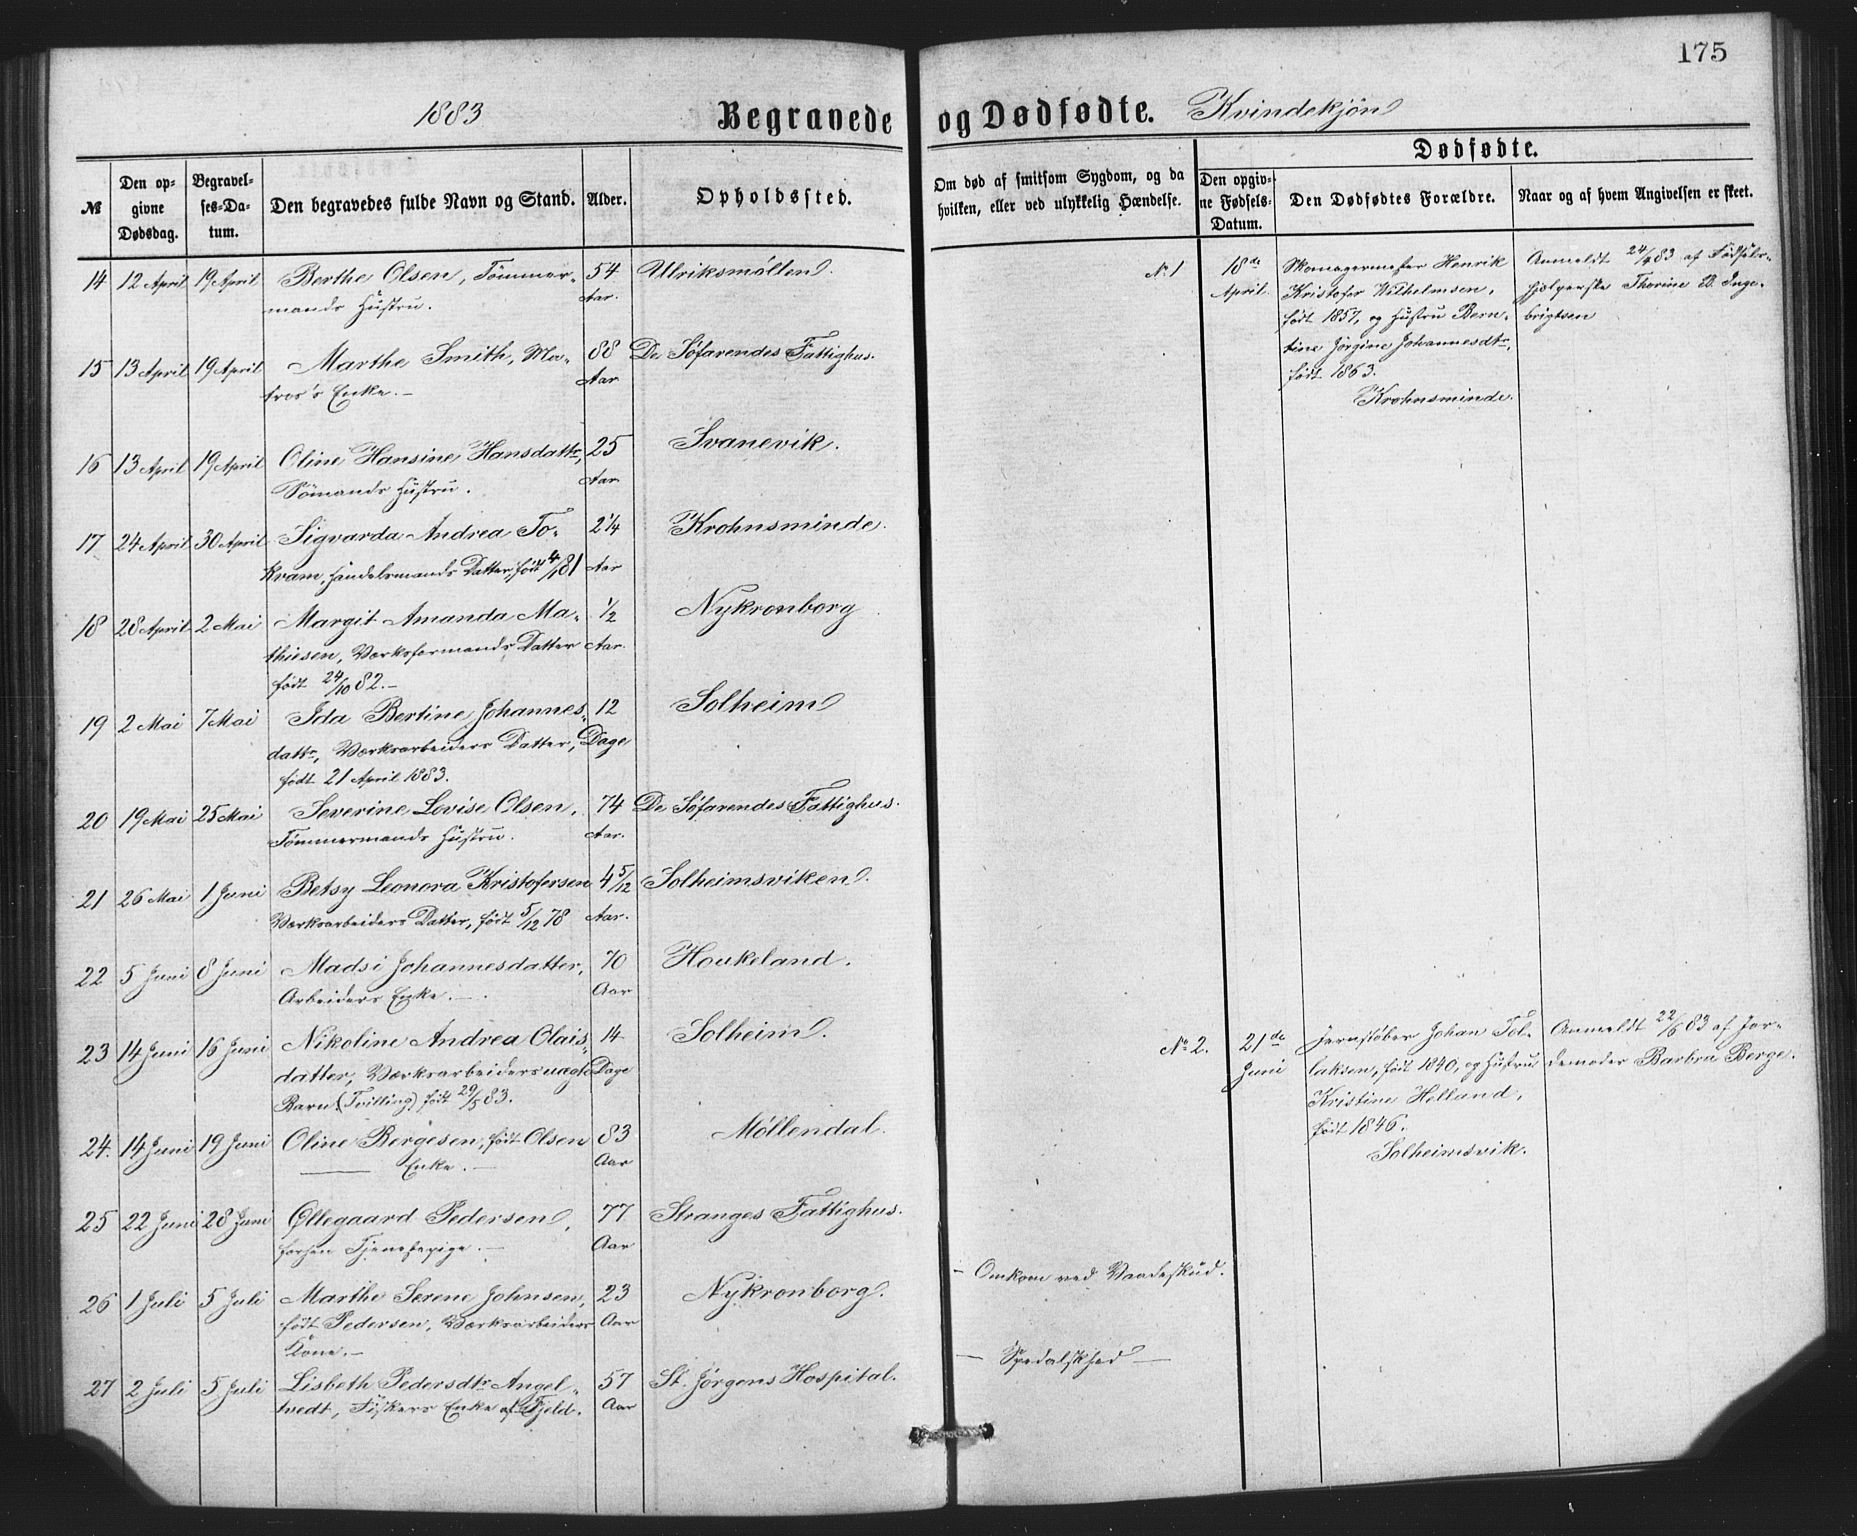 175
1883
Begravede og Dødfødte. Kvindekjøn
№
Den opgivne Dødsdag.
Begravelses-Datum.
Den begravedes fulde Navn og Stand.
Alder.
Opholdssted.
Om død af smitsom Sygdom, og da hvilken, eller ved ulykkelig Hændelse.
Dødfødte.
Den opgivne Fødsels-Datum.
Den Dødfødtes Forældre.
Naar og af hvem Angivelsen er skeet.
14 12 April 19 April Berthe Olsen, Tømmer- 54 Ulriksmølten.
mands Hustru. Aar.
15 13 April 19 April Marthe Smith, Ma- 88 De Søfarendes Fattighus.
tros's Enke. Aar
16 13 April 19 April Oline Hansine Hansdattr, 25 Svanevik.
Sømands Hustru. Aar
17 24 April 30 April Sigvarda Andrea To- 2 1/4 Krohnsminde.
kvam, Handelsmands Datter, født 4/1 81 Aar
18 28 April 2 Mai Margit Amanda Ma- 1/2 Nykronborg
thiesen, Værksformands Datter Aar.
født 24/10 82.
19 2 Mai 7 Mai Ida Bertine Johannes- 12 Solheim
dattr, Værksarbeiders Datter, Dage
født 21 April 1883.
20 19 Mai 25 Mai Severine Lovise Olsen, 74 De Søfarendes Fattighus.
Tømmermands Hustru. Aar.
21 26 Mai 1 Juni Betsy Leonora Kristofersen 4 5/12 Solheimsviken.
Værksarbeiders Datter, født 5/12 78 Aar.
22 5 Juni 8 Juni Madsi Johannesdatter, 70 Houkeland.
Arbeiders Enke. Aar
23 14 Juni 16 Juni Nikoline Andrea Olais- 14 Solheim.
datter, Værksarbeiders uægte Dage
Barn (Tvilling) født 29/5 83.
24. 14 Juni 19 Juni Oline Bergesen, født Olsen 83 Møllendal.
Enke. Aar
25 22 Juni 28 Juni Øllegaard Pedersen, 77 Stranges Fattighus.
forhen Tjenestepige. Aar
26 1 Juli 5 Juli Marthe Serene Johnsen, 23 Nykronborg. - Omkom ved Vaadeskud.
født Pedersen, Værksarbeiders Aar
Kone.
27 2 Juli 5 Juli Lisbeth Pedersdtr Angel- 57 St. Jørgens Hospital. — Spedalskhed —
tvedt, Fiskers Enke af Fjeld. Aar
№ 1 18de Skomagermester Henrik Anmeldt 24/4 83 af Fødsels-
April. Kristofer Wilhelmsen, hjælperske Thorine B. Inge-
født 1857, og Hustru Bern- brigtsen
tine Jørgine Johannesdtr,
født 1863.
Krohnsminde.
№ 2. 21de Jernstøber Johan Tol- Anmeldt 22/6 83 af Jor-
Juni laksen, født 1840, og Hustru demoder Barbru Berge.
Kristine Helland,
født 1846.
Solheimsvik.